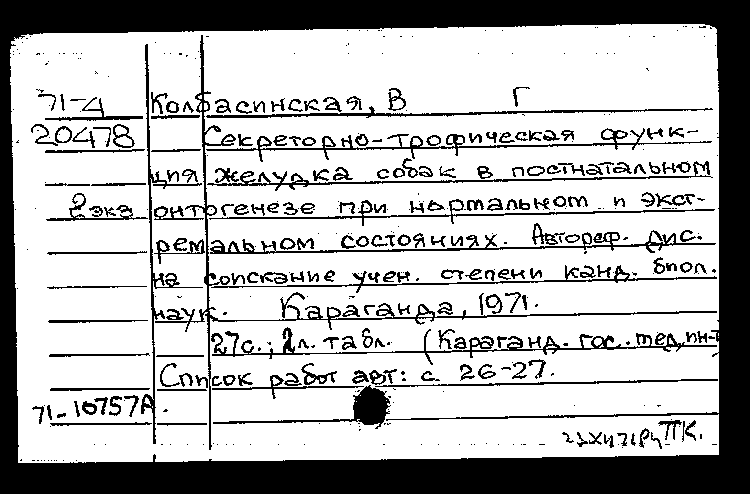 71-4 Колбасинская, В Г
20478 Секреторно-трофическая функ-
ция желудка собак в постнатальном
2 экз онтогенезе при нормальном и экст-
ремальном состояниях. Автореф. дис.
на соискание учен. степени канд. биол.
наук. Караганда, 1971.
27с.; 2л. табл. (Караганд. гос. мед. ин-т
Список работ авт: с. 26-27.
71-10757А.
ПК.